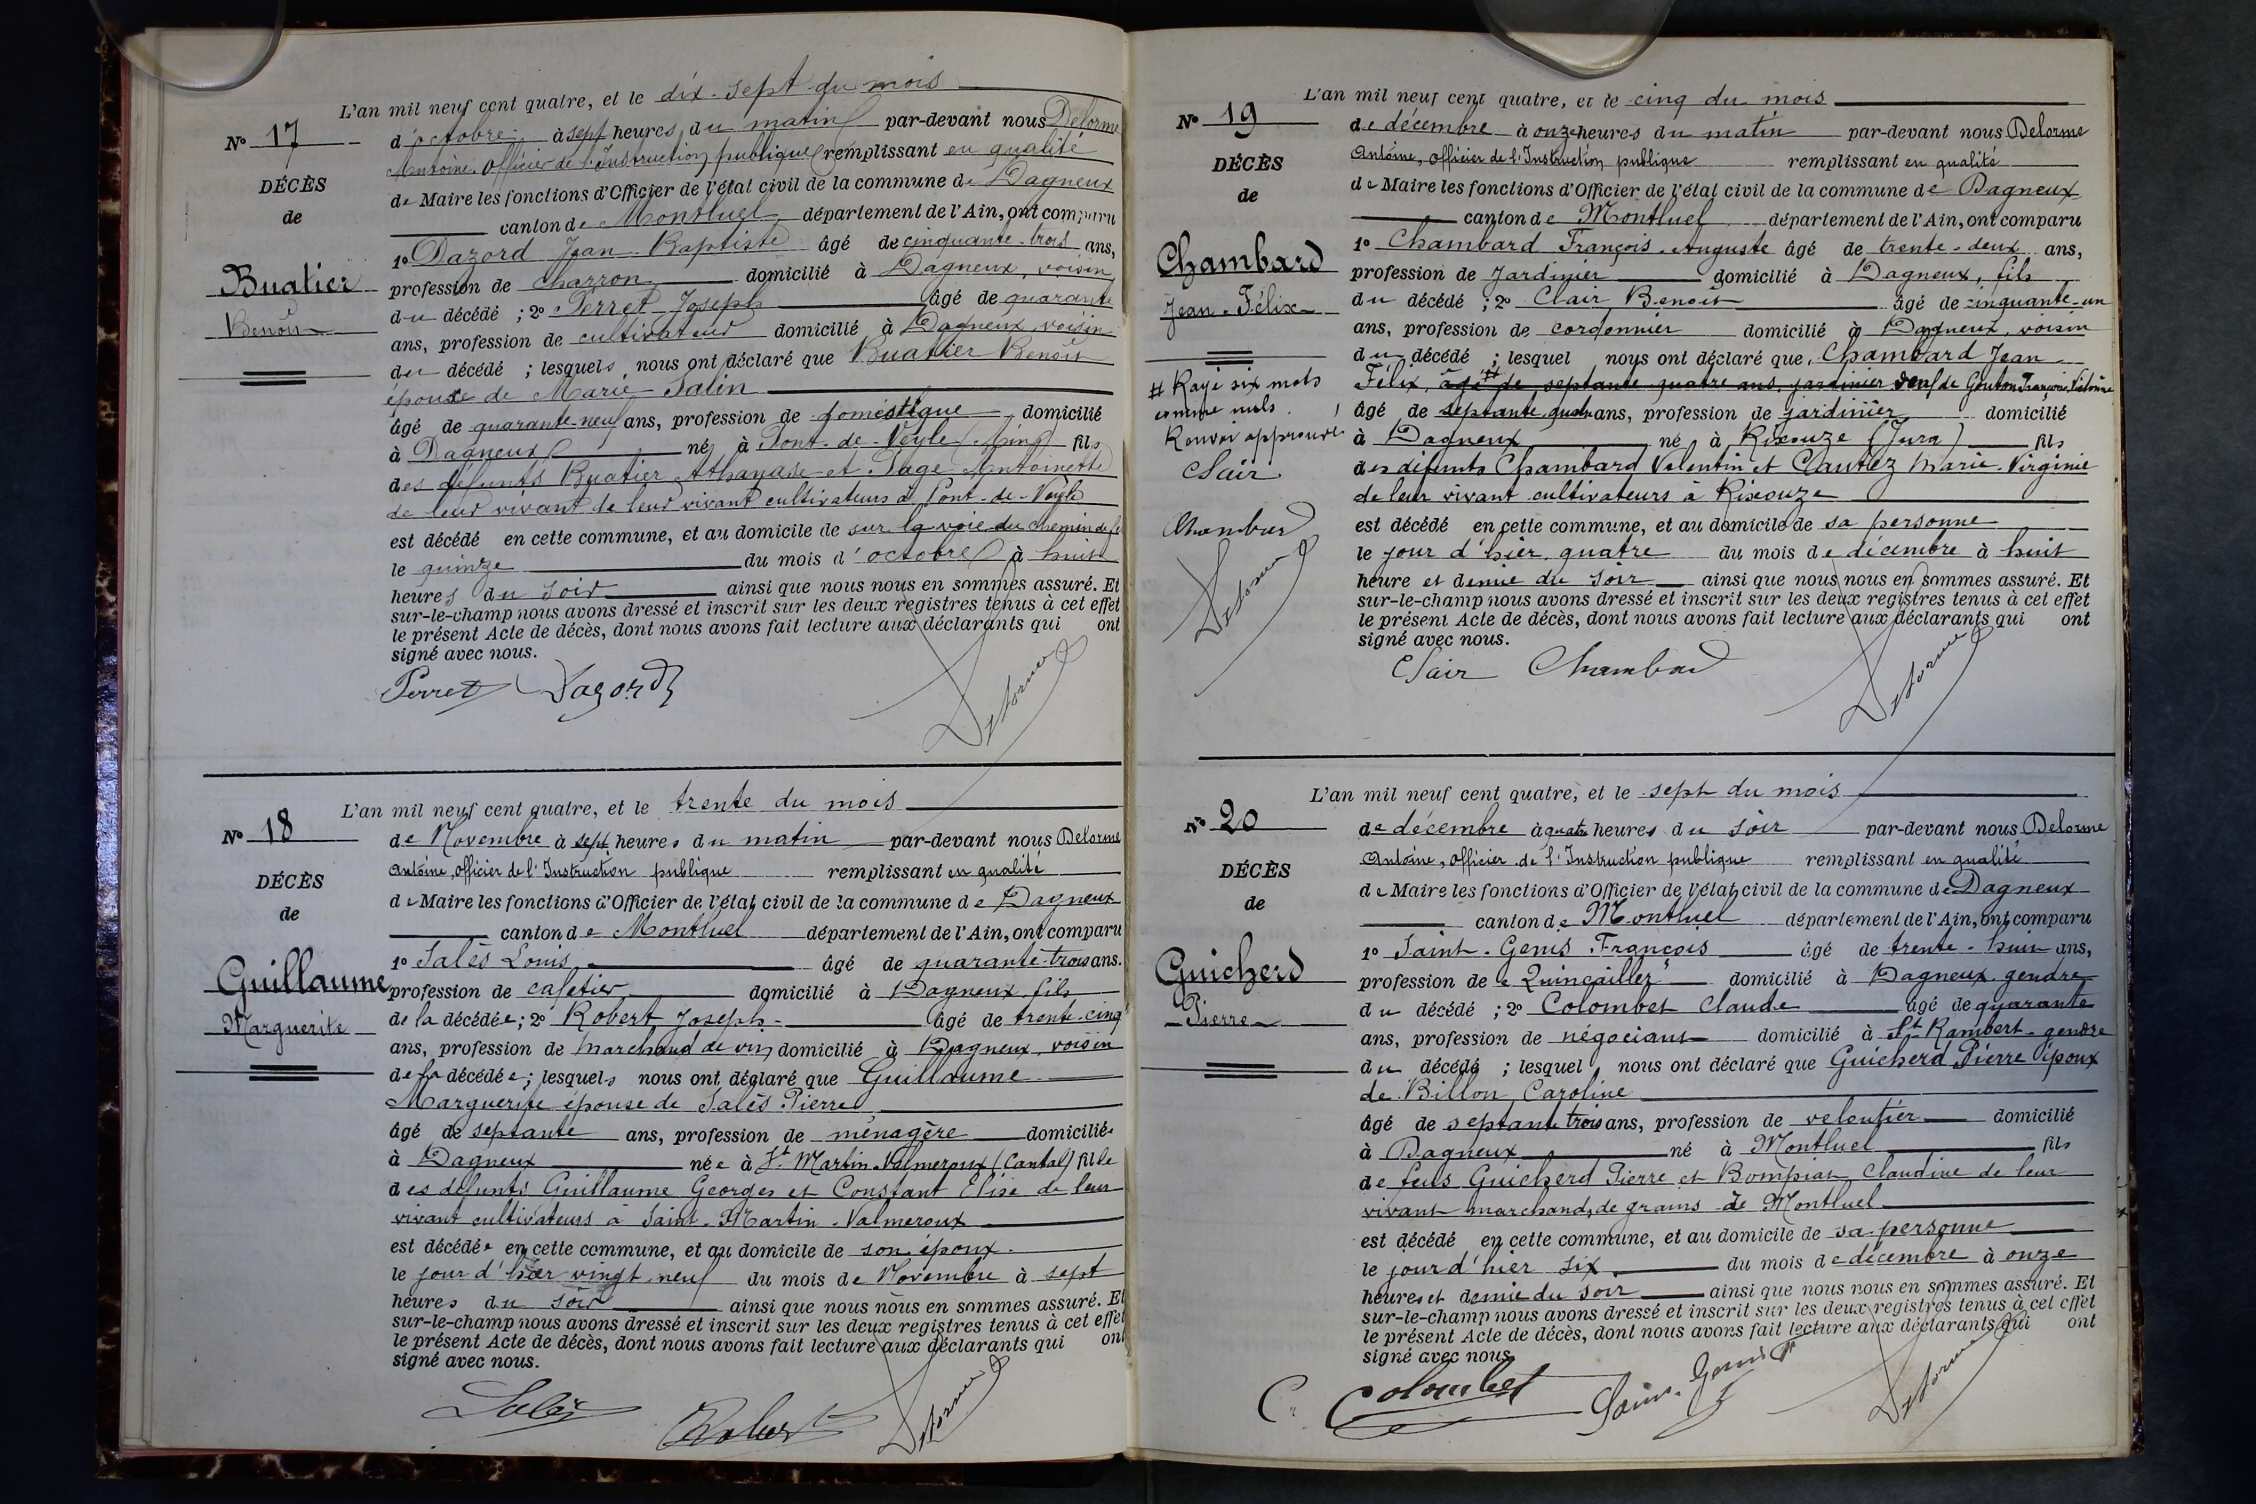 L'an mil neuf cent quatre, et le dix-sept du mois
N° 17
d'octobre à sept heures du matin par-devant nous Delorme
Antoine, Officier de l'Instruction publique remplissant en qualité
DÉCÈS
de Maire les fonctions d'Officier de l'état civil de la commune de Dagneux
de
canton de Montluel département de l'Ain, ont comparu
1° Dazord Jean-Baptiste âgé de cinquante-trois ans,
Buatier
profession de charron domicilié à Dagneux, voisin
Benoît
du décédé ; 2° Perret Joseph âgé de quarante
ans, profession de cultivateur domicilié à Dagneux voisin
du décédé ; lesquels nous ont déclaré que Buatier Benoît
époux de Marie Talin
âgé de quarante-neuf ans, profession de domestique domicilié
à Dagneux né à Pont-de-Veyle (Ain) fils
des défunts Buatier Athanase et Page Antoinette
de leur vivant de leur vivant cultivateurs à Pont-de-Veyle
est décédé en cette commune, et au domicile de sur la voie du chemin de
le quinze du mois d'octobre à huit
heures du soir ainsi que nous nous en sommes assuré. Et
sur-le-champ nous avons dressé et inscrit sur les deux registres tenus à cet effet
le présent Acte de décès, dont nous avons fait lecture aux déclarants qui ont
signé avec nous.
Perret Dazord Delorme
L'an mil neuf cent quatre, et le trente du mois
N° 18
de Novembre à sept heures du matin par-devant nous Delorme
Antoine, officier de l'Instruction publique remplissant en qualité
DÉCÈS
de Maire les fonctions d'Officier de l'état civil de la commune de Dagneux
de
canton de Montluel département de l'Ain, ont comparu
1° Salès Louis âgé de quarante-trois ans.
Guillaume
profession de cafetier domicilié à Dagneux, fils
Marguerite
de la décédée ; 2° Robert Joseph âgé de trente-cinq
ans, profession de marchand de vin domicilié à Dagneux, voisin
de la décédée ; lesquels nous ont déclaré que Guillaume
Marguerite épouse de Salès Pierre
âgé de septante ans, profession de ménagère domiciliée
à Dagneux née à St Martin Valmeroux (Cantal) fille
des défunts Guillaume Georges et Constant Elise de leur
vivant cultivateurs à Saint-Martin-Valmeroux
est décédée en cette commune, et au domicile de son époux.
le jour d'hier vingt-neuf du mois de Novembre à sept
heures du soir ainsi que nous nous en sommes assuré. Et
sur-le-champ nous avons dressé et inscrit sur les deux registres tenus à cet effet
le présent Acte de décès, dont nous avons fait lecture aux déclarants qui ont
signé avec nous.
Salès Robert Delorme
L'an mil neuf cent quatre, et le cinq du mois
N° 19
de décembre à onze heures du matin par-devant nous Delorme
Antoine, officier de l'Instruction publique remplissant en qualité
DÉCÈS
de Maire les fonctions d'Officier de l'état civil de la commune de Dagneux
de
canton de Montluel département de l'Ain, ont comparu
1° Chambard François-Auguste âgé de trente-deux ans,
Chambard
profession de Jardinier domicilié à Dagneux, fils
Jean-Félix
du décédé ; 2° Clair Benoit âgé de cinquante-un
ans, profession de cordonnier domicilié à Dagneux, voisin
du décédé ; lesquel nous ont déclaré que Chambard Jean
# Rayé six mots
comme nuls.
Renvoi approuvé
Clair
Chambard
Delorme
Félix, âgé # de septante quatre ans, jardinier veuf de Françoise
âgé de septante quatre ans, profession de jardinier domicilié
à Dagneux né à Rixouze (Jura) fils
des défunts Chambard Valentin et Clautez Marie-Virginie
de leur vivant cultivateurs à Rixouze
est décédé en cette commune, et au domicile de sa personne
le jour d'hier quatre du mois de décembre à huit
heure et demie du soir ainsi que nous nous en sommes assuré. Et
sur-le-champ nous avons dressé et inscrit sur les deux registres tenus à cet effet
le présent Acte de décès, dont nous avons fait lecture aux déclarants qui ont
signé avec nous.
Clair Chambard Delorme
L'an mil neuf cent quatre, et le sept du mois
N° 20
de décembre à quatre heures du soir par-devant nous Delorme
Antoine, officier de l'Instruction publique remplissant en qualité
DÉCÈS
de Maire les fonctions d'Officier de l'état civil de la commune de Dagneux
de
canton de Montluel département de l'Ain, ont comparu
1° Saint-Genis François âgé de trente-huit ans,
Guicherd
profession de Quincailler domicilié à Dagneux gendre
Pierre
du décédé ; 2° Colombet Claude âgé de quarante
ans, profession de négociant domicilié à St Rambert-gendre
du décédé ; lesquel nous ont déclaré que Guicherd Pierre époux
de Billon Caroline
âgé de septante trois ans, profession de veloutier domicilié
à Dagneux né à Montluel fils
de feus Guicherd Pierre et Bompiat Claudine de leur
vivant marchands de grains de Montluel
est décédé en cette commune, et au domicile de sa personne
le jour d'hier six du mois de décembre à onze
heures et demie du soir ainsi que nous nous en sommes assuré. Et
sur-le-champ nous avons dressé et inscrit sur les deux registres tenus à cet effet
le présent Acte de décès, dont nous avons fait lecture aux déclarants qui ont
signé avec nous
C. Colombet Saint-Genis Delorme